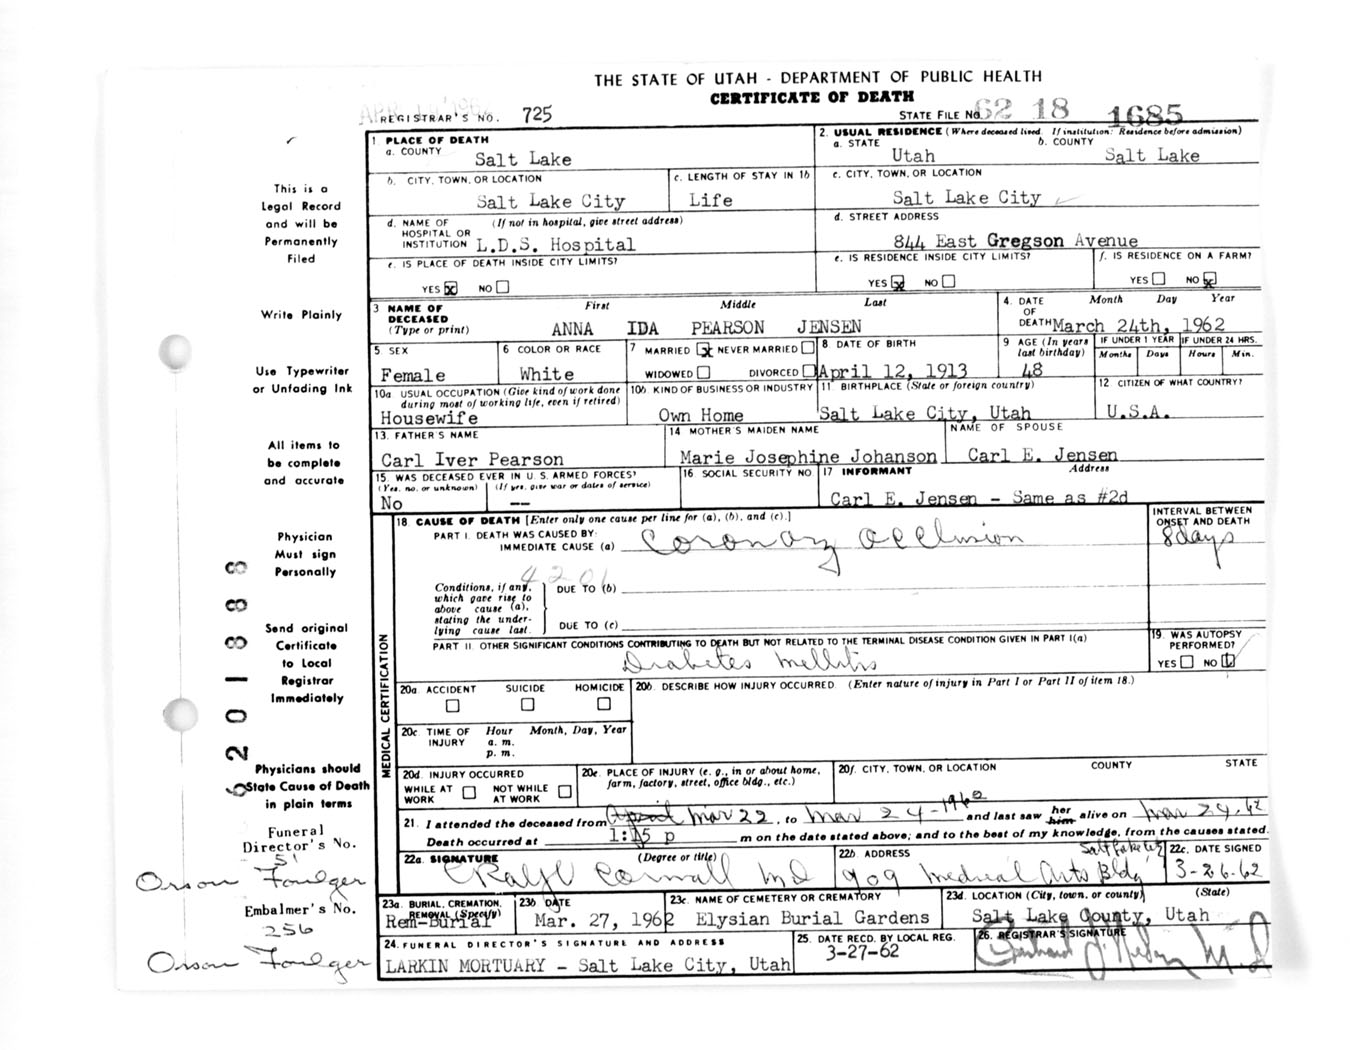 THE STATE OF UTAH - DEPARTMENT OF PUBLIC HEALTH
CERTIFICATE OF DEATH
REGISTRAR'S NO. 725
STATE FILE NO. 62 18 1685
1. PLACE OF DEATH
a. COUNTY Salt Lake
2. USUAL RESIDENCE (Where deceased lived. If institution: Residence before admission)
a. STATE Utah
b. COUNTY Salt Lake
b. CITY, TOWN, OR LOCATION Salt Lake City
c. LENGTH OF STAY IN 1b Life
c. CITY, TOWN, OR LOCATION Salt Lake City
d. NAME OF HOSPITAL OR INSTITUTION (If not in hospital, give street address) L.D.S. Hospital
d. STREET ADDRESS 844 East Gregson Avenue
e. IS PLACE OF DEATH INSIDE CITY LIMITS?
YES x NO
e. IS RESIDENCE INSIDE CITY LIMITS?
YES x NO
f. IS RESIDENCE ON A FARM?
YES NO x
3 NAME OF DECEASED (Type or print)
First Middle Last
ANNA IDA PEARSON JENSEN
4. DATE OF DEATH Month Day Year
March 24th, 1962
5 SEX Female
6 COLOR OR RACE White
7 MARRIED x NEVER MARRIED
WIDOWED DIVORCED
8 DATE OF BIRTH April 12, 1913
9 AGE (In years last birthday) 48
IF UNDER 1 YEAR Months Days
IF UNDER 24 HRS. Hours Min.
10a USUAL OCCUPATION (Give kind of work done during most of working life, even if retired)
Housewife
10b KIND OF BUSINESS OR INDUSTRY Own Home
11 BIRTHPLACE (State or foreign country) Salt Lake City, Utah
12 CITIZEN OF WHAT COUNTRY? U.S.A.
13. FATHER'S NAME Carl Iver Pearson
14 MOTHER'S MAIDEN NAME Marie Josephine Johanson
NAME OF SPOUSE Carl E. Jensen
15. WAS DECEASED EVER IN U. S. ARMED FORCES?
(Yes, no, or unknown) (If yes, give war or dates of service)
No --
16 SOCIAL SECURITY NO
17 INFORMANT Address
Carl E. Jensen - Same as #2d
18 CAUSE OF DEATH [Enter only one cause per line for (a), (b), and (c).]
PART I. DEATH WAS CAUSED BY:
IMMEDIATE CAUSE (a) Coronary Occlusion
INTERVAL BETWEEN ONSET AND DEATH
8 days
4201
Conditions, if any, which gave rise to above cause (a), stating the underlying cause last.
DUE TO (b)
DUE TO (c)
PART II. OTHER SIGNIFICANT CONDITIONS CONTRIBUTING TO DEATH BUT NOT RELATED TO THE TERMINAL DISEASE CONDITION GIVEN IN PART I(a)
Diabetes Mellitis
19. WAS AUTOPSY PERFORMED?
YES NO
MEDICAL CERTIFICATION
20a ACCIDENT SUICIDE HOMICIDE
20b. DESCRIBE HOW INJURY OCCURRED. (Enter nature of injury in Part I or Part II of item 18.)
20c. TIME OF INJURY Hour Month, Day, Year
a. m.
p. m.
20d. INJURY OCCURRED
WHILE AT WORK NOT WHILE AT WORK
20e. PLACE OF INJURY (e. g., in or about home, farm, factory, street, office bldg., etc.)
20f. CITY, TOWN, OR LOCATION COUNTY STATE
21. I attended the deceased from April Mar 22, to Mar 24 - 1962 and last saw her him alive on Mar 24, 62
Death occurred at 1:15 p m on the date stated above; and to the best of my knowledge, from the causes stated.
22a. SIGNATURE (Degree or title)
Ralph Cornwall MD
22b. ADDRESS 909 Medical Arts Bldg Salt Lake City
22c. DATE SIGNED 3-26-62
23a. BURIAL, CREMATION, REMOVAL (Specify) Rem-Burial
23b DATE Mar. 27, 1962
23c. NAME OF CEMETERY OR CREMATORY Elysian Burial Gardens
23d. LOCATION (City, town, or county) (State)
Salt Lake County, Utah
24. FUNERAL DIRECTOR'S SIGNATURE AND ADDRESS
LARKIN MORTUARY - Salt Lake City, Utah
25. DATE RECD. BY LOCAL REG. 3-27-62
26. REGISTRAR'S SIGNATURE
M.D
This is a
Legal Record
and will be
Permanently
Filed
Write Plainly
Use Typewriter
or Unfading Ink
All items to
be complete
and accurate
Physician
Must sign
Personally
Send original
Certificate
to Local
Registrar
Immediately
Physicians should
State Cause of Death
in plain terms
Funeral
Director's No.
51
Orson Foulger
Embalmer's No.
256
Orson Foulger